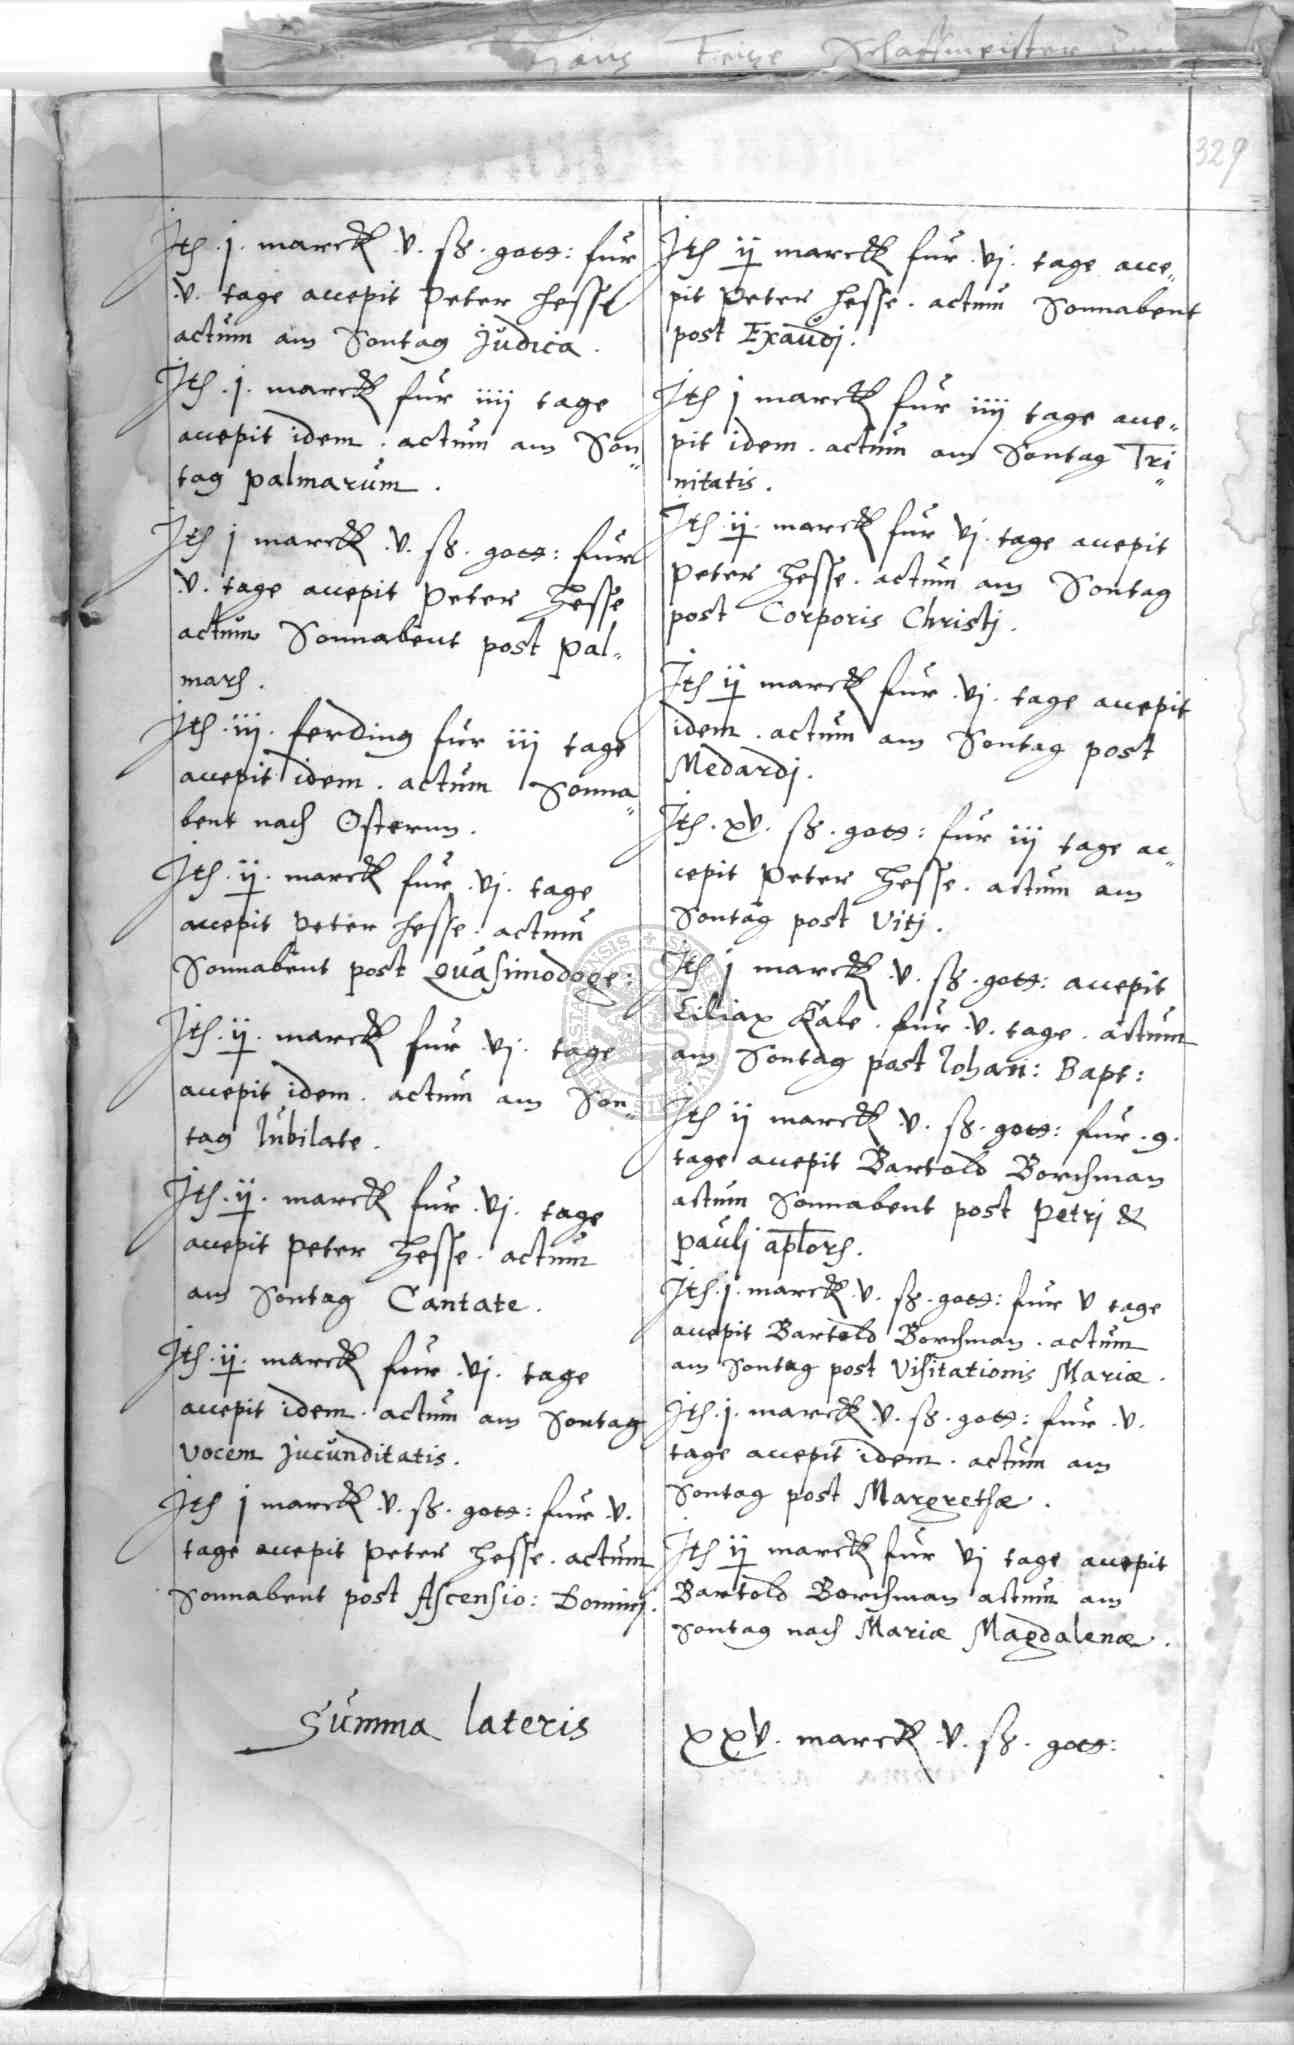 Hans Frize Schaffmeister
329
Jth .j. marck .v. sch. gott: fur
.v. tage accepit Peter Hesse
actum am Sontag Judica .
Jth .j. marck fur iiij tage
accepit idem . actum am Son„
tag palmarum .
Jth j marck .v. sch. gott: fur
.v. tage accepit Peter Hesse
actum Sonnabent post pal„
marh .
Jth .iij. ferding fur iij tage
accepit idem . actum Sonna„
bent nach Osternn .
Jth .ij. marck fur .vj. tage
accepit Peter Hesse . actum
Sonnabent post Quasimodoge:
Jth .ij. marck fur .vj. tage
accepit idem . actum am Son„
tag Iubilate .
Jth .ij. marck fur .vj. tage
accepit Peter Hesse . actum
am Sontag Cantate .
Jth .ij. marck fur .vj. tage
accepit idem . actum am Sontag
Vocem Jucunditatis .
Jth j marck .v. sch. gott: fur .v.
tage accepit Peter Hesse . actum
Sonnabent post Ascensio: Dominj .
Summa lateris
Jth ij marck fur .vj. tage acce„
pit Peter Hesse . actum Sonnabent
post Exaudj .
Jth j marck fur iiij tage acce„
pit idem . actum am Sontag Tri„
nitatis .
Jth .ij. marck fur vj . tage accepit
Peter Hesse . actum am Sontag
post Corporis Christj .
Jth ij marck fur .vj. tage accepit
idem . actum am Sontag post
Medardj .
Jth . xv . sch . gott: fur iij tage ac„
cepit Peter Hesse . actum am
Sontag post Vitj .
Jth j marck .v. sch. gott: accepit
Ciliax Kale . fur .v. tage . actum
am Sontag post Iohan: Bapt:
Jth ij marck .v. sch. gott: fur .9.
tage accepit Bartold Borchman
actum Sonnabent post Petri &
Paulj aplorh .
Jth .j. marck .v. sch. gott: fur v tage
accepit Bartold Borchman . actum
am Sontag post Visitationis Mariæ .
Jth .j. marck .v. sch. gott: fur .v.
tage accepit idem . actum am
Sontag post Margrethæ .
Jth ij marck fur vj tage accepit
Bartold Borchman actum am
Sontag nach Mariæ Magdalenæ .
xxv . marck .v. sch . gott: